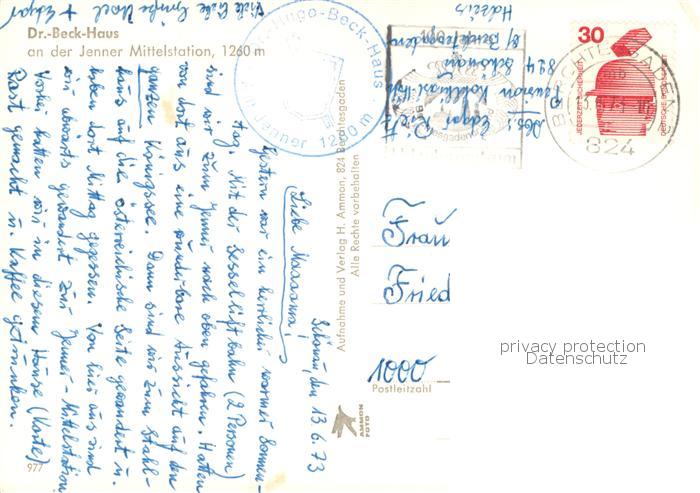 Dr.-Beck-Haus
an der Jenner Mittelstation, 1260 m
Dr.-Hugo-Beck-Haus
Jenner 1260 m
30
JEDERZEIT SICHERHEIT
DEUTSCHE BUNDESPOST
BERCHTESGADEN
824
Abs.: Edgar
Pension
824 Schönau
b/ Berchtesgaden
Schönau, den 13.6.73
Liebe Mamma!
Gestern war ein herrlicher warmer Sonnen-
tag. Mit der Sesselliftbahn (2 Personen)
sind wir zum Jenner nach oben gefahren. Hatten
von dort aus eine wunderbare Aussicht auf den
ganzen Königssee. Dann sind wir zum Stahl-
haus auf die österreichische Seite gewandert u.
haben dort Mittag gegessen. Von hier aus sind
wir abwärts gewandert zur Jenner-Mittelstation
Vorher hatten wir in diesem Hause (Karte)
Rast gemacht u. Kaffee getrunken.
Viele liebe Grüße + Edgar
Frau
Fried
1000
Postleitzahl
Aufnahme und Verlag H. Ammon, 824 Berchtesgaden
Alle Rechte vorbehalten
AMMON
FOTO
977
privacy protection
Datenschutz